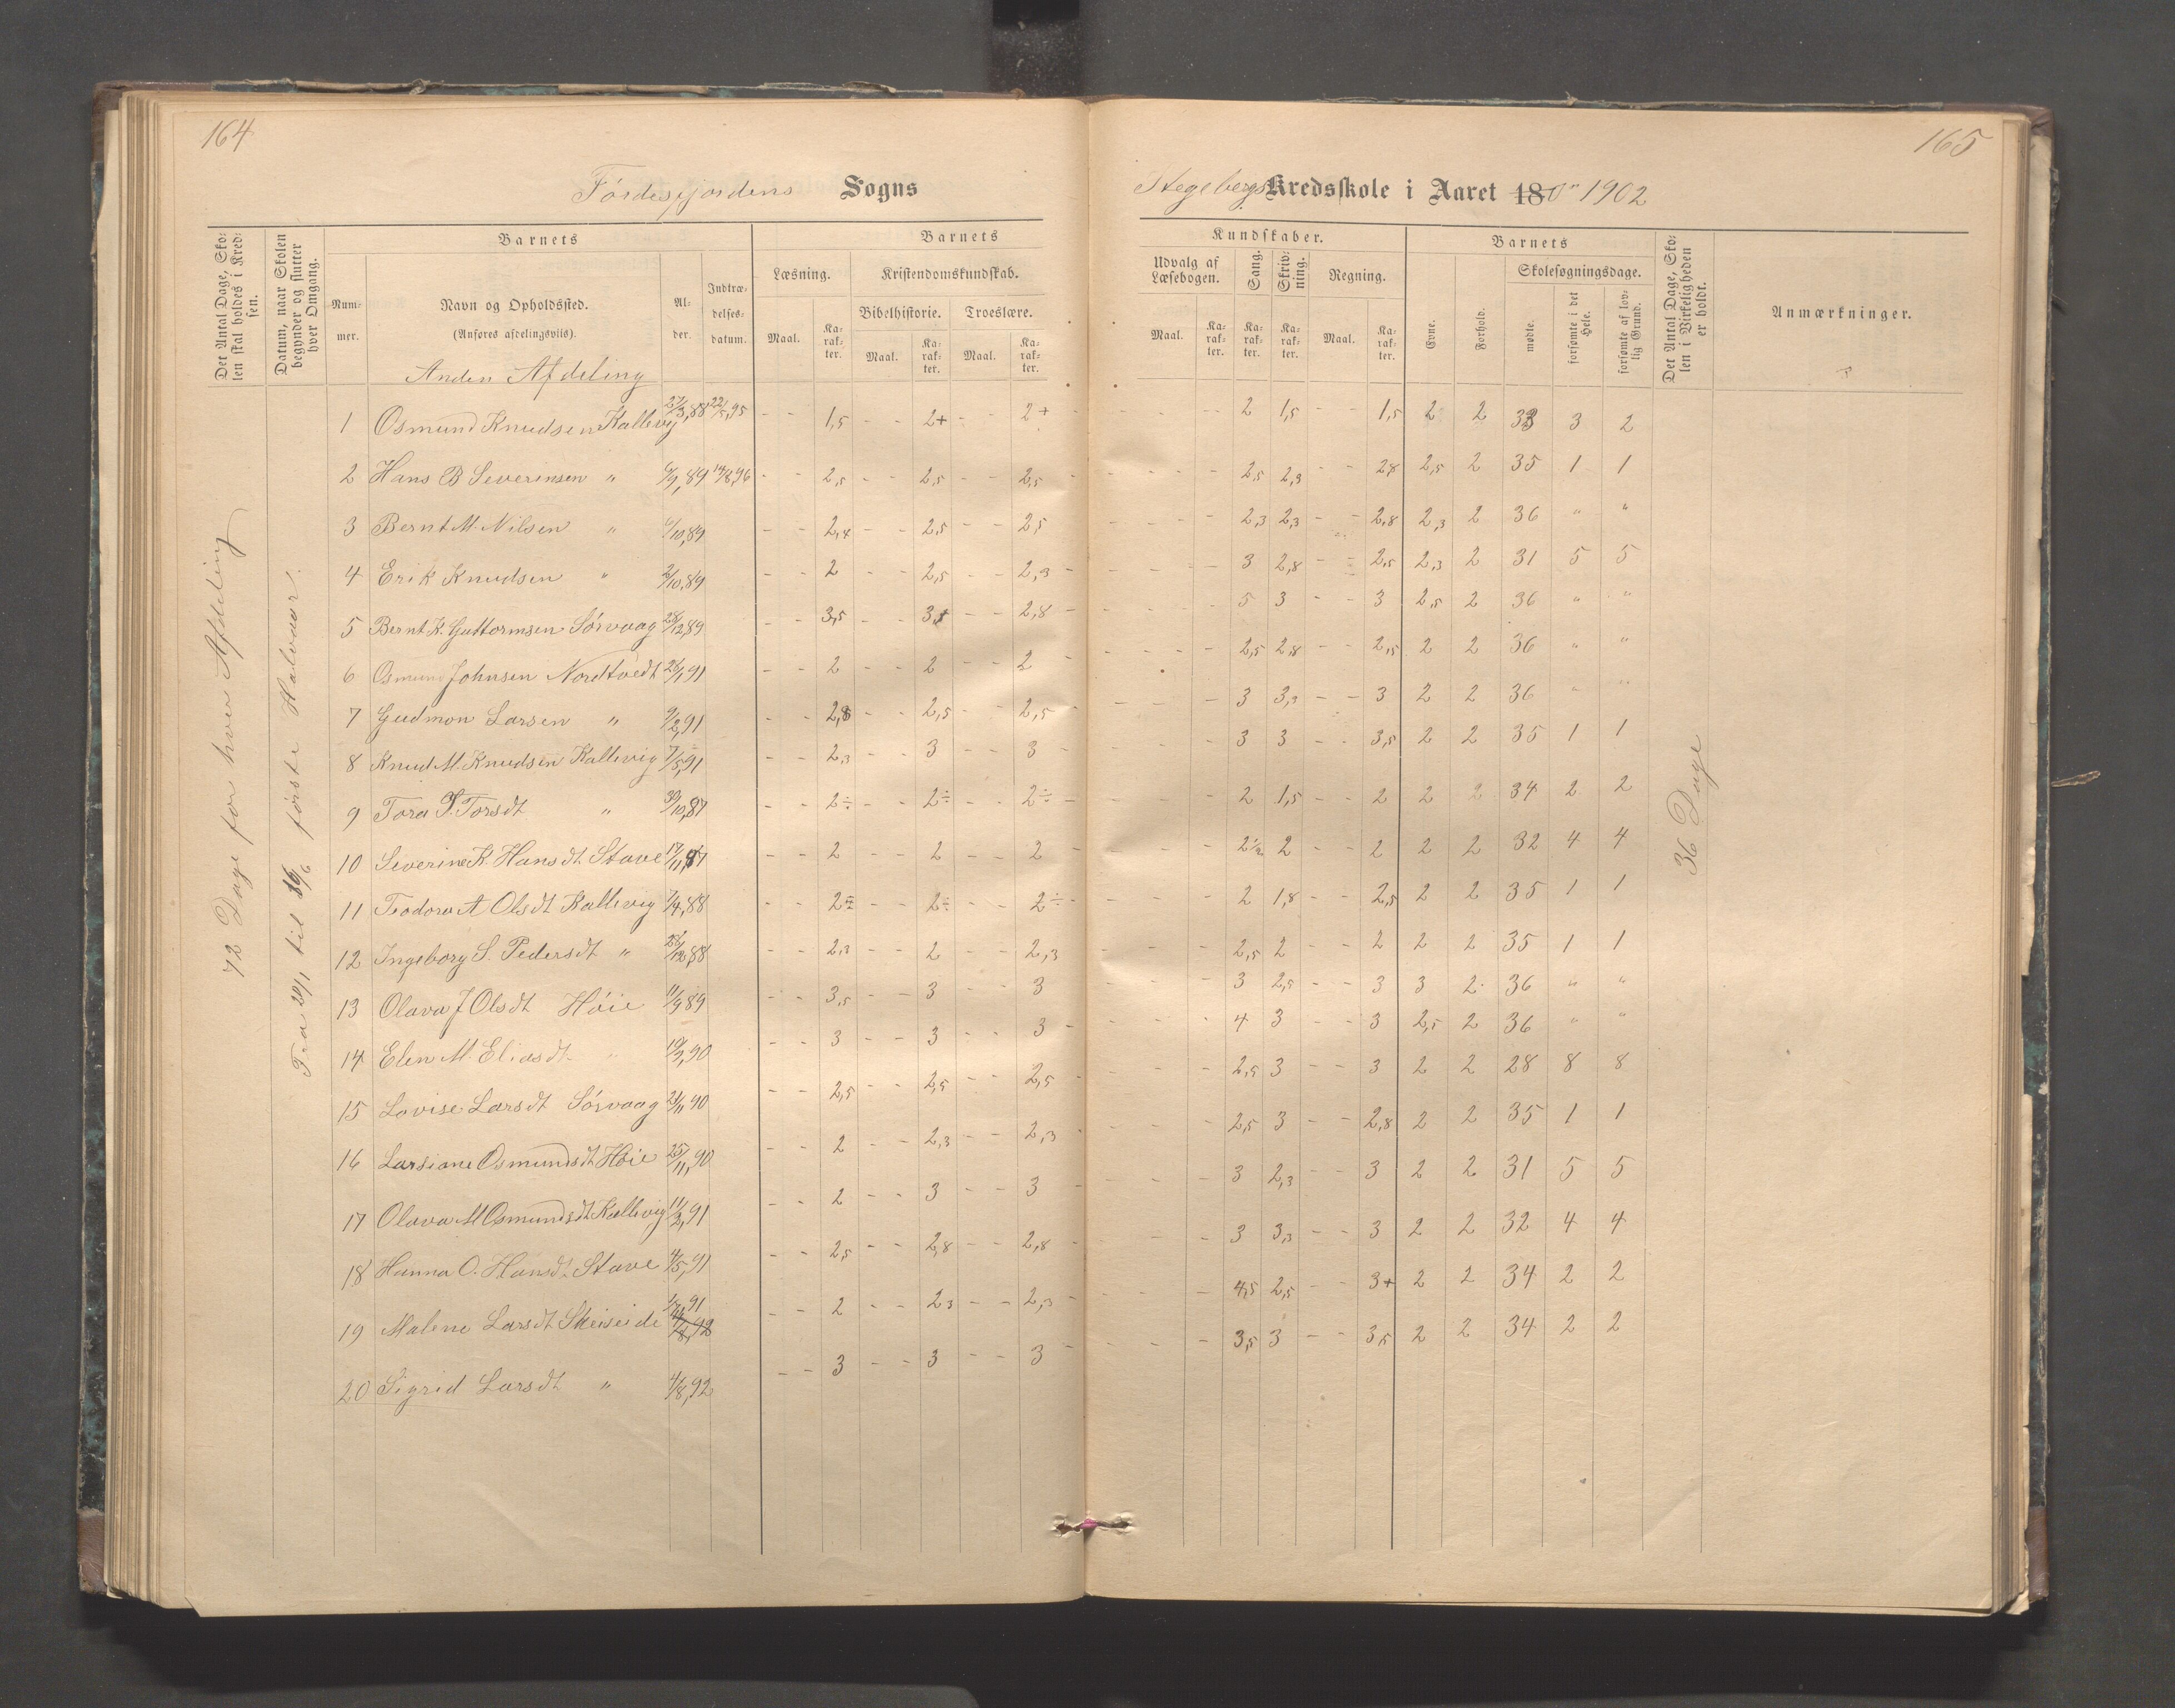 164
165
Førdesfjordens Sogns
Stegebergs Kredsskole i Aaret 18 1902
Det Antal Dage, Skolen skal holdes i Kredsen.
Datum, naar Skolen begynder og slutter hver Omgang.
Barnets
Nummer.
Navn og Opholdssted.
(Anføres afdelingsviis).
Alder.
Indtrædelsesdatum.
Barnets
Læsning.
Maal.
Karakter.
Kristendomskundskab.
Bibelhistorie.
Maal.
Karakter.
Troeslære.
Maal.
Karakter.
Kundskaber.
Udvalg af Læsebogen.
Maal.
Karakter.
Sang.
Karakter.
Skrivning.
Karakter.
Regning.
Maal.
Karakter.
Barnets
Evne.
Forhold.
Skolesøgningsdage.
mødte.
forsømte i det Hele.
forsømte af lovlig Grund.
Det Antal Dage, Skolen i Virkeligheden er holdt.
Anmærkninger.
72 Dage for hver Afdeling
første Halvaar.
36 Dage
Anden Afdeling
1 Osmund Knudsen Kallevig 27/3,88 22/5,95 - - 1,5 - - 2+ - - 2+ - - - 2 1,5 - - 1,5 2 2 33 3 2
2 Hans B Severinsen " 6/9,89 14/8,96 - - 2,5 - - 2,5 - - 2,5 - - - 2,5 2,3 - - 2,8 2,5 2 35 1 1
3 Bernt M. Nilsen " 6/10,89 - - 2,4 - - 2,5 - - 2,5 - - - 2,3 2,3 - - 2,8 2,3 2 36 " "
4 Erik Knudsen " 2/10,89 - - 2 - - 2,5 - - 2,3 - - - 3 2,8 - - 2,5 2,3 2 31 5 5
5 Bernt K. Guttormsen Sørvaag 28/12,89 - - 3,5 - - 3,5 - - 2,8 - - - 5 3 - - 3 2,5 2 36 " "
6 Osmund Johnsen Nordtvedt 26/1,91 - - 2 - - 2 - - 2 - - - 2,5 2,8 - - 2,5 2 2 36 " "
7 Gudmon Larsen " 9/2,91 - - 2,8 - - 2,5 - - 2,5 - - - 3 3,3 - - 3 2 2 36 " "
8 Knud M. Knudsen Kallevig 7/5,91 - - 2,3 - - 3 - - 3 - - - 3 3 - - 3,5 2 2 35 1 1
9 Tora T. Torsdt " 30/10,87 - - 2÷ - - 2÷ - - 2÷ - - - 2 1,5 - - 2 2 2 34 2 2
10 Severine K. Hansdt Stave 17/11,87 - - 2 - - 2 - - 2 - - - 2½ 2 - - 2 2 2 32 4 4
11 Teodora A Olsdt Kallevig 7/4,88 - - 2÷ - - 2÷ - - 2÷ - - - 2 1,8 - - 2,5 2 2 35 1 1
12 Ingeborg S. Pedersdt " 28/12,88 - - 2,3 - - 2 - - 2,3 - - - 2,5 2 - - 2 2 2 35 1 1
13 Olava J Olsdt Høie 11/9,89 - - 3,5 - - 3 - - 3 - - - 3 2,5 - - 3 3 2 36 " "
14 Elen M. Eliasdt " 19/2,90 - - 3 - - 3 - - 3 - - - 4 3 - - 3 2,5 2 36 " "
15 Lovise Larsdt Sørvaag 21/11,90 - - 2,5 - - 2,5 - - 2,5 - - - 2,5 3 - - 3 2 2 28 8 8
16 Larsiane Osmundsdt Høie 25/11,90 - - 2 - - 2,3 - - 2,3 - - - 2,5 3 - - 2,8 2 2 35 1 1
17 Olava M Osmundsdt Kallevig 11/2,91 - - 2 - - 3 - - 3 - - - 3 2,3 - - 3 2 2 31 5 5
18 Hanna O. Hansdt Stave 4/5,91 - - 2,5 - - 2,8 - - 2,8 - - - 3 3,3 - - 3 2 2 32 4 4
19 Malene Larsdt Skeiseide - - 2 - - 2,3 - - 2,3 - - - 4,5 2,5 - - 3+ 2 2 34 2 2
20 Sigrid Larsdt " 4/8,92 - - 3 - - 3 - - 3 - - - 3,5 3 - - 3,5 2 2 34 2 2